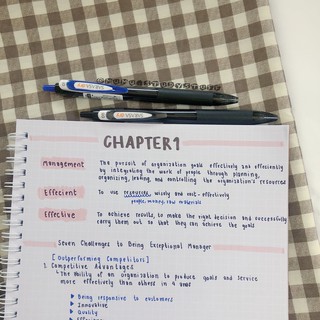 CHAPTER 1
Management The pursuit of organization goals effectively and efficiently
by integrating the work of people through planning,
organizing, leading, and controlling the organization's resources
Effecient To use resources wisely and cost-effectively
people, money, raw materials
Effective To achieve results, to make the right decision and successfully
carry them out so that they can achieve the goals
Seven Challenges to Being Exceptional Manager
[Outperforming Competitors]
1. Competitive Advantages
The Ability of an Organization to produce goods and service
more effectively than others in
▶ Being responsive to customers
▶ Innovative
▶ Quality